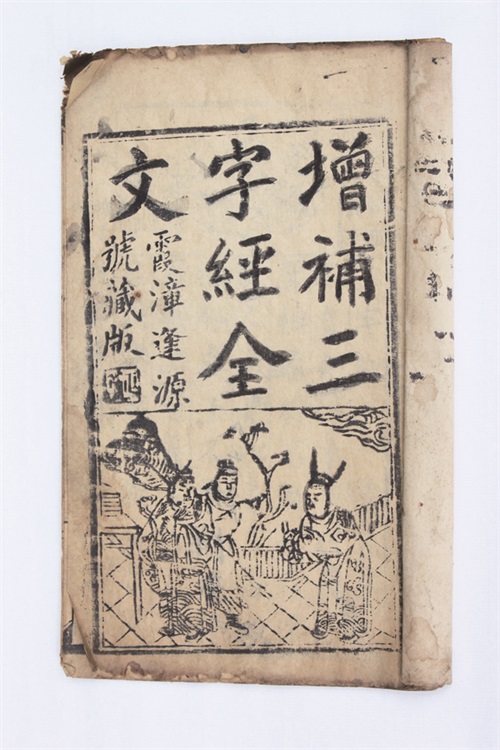 增補三
字經全
文
霞漳逢源
號藏版